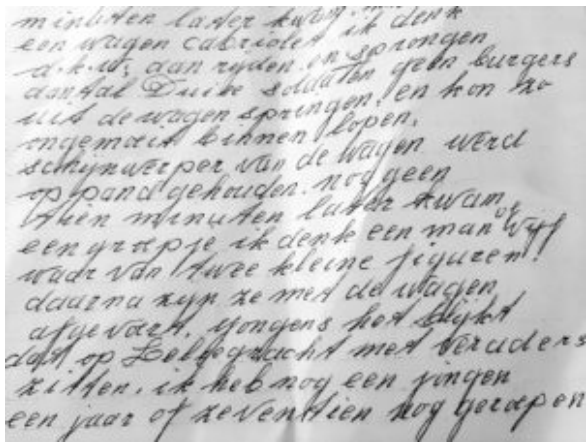 minuten later kwam
een wagen cabriolet ik denk
d.k.w. aan ryden en sprongen
aantal Duise soldaten geen burgers
uit de wagen springen, en kon zo
ongemoeit binnen lopen,
schijnwerper van de wagen werd
op pand gehouden. nog geen
tien minuten later kwam
een groepje ik denk een man of vijf
waar van twee kleine figuren!
daarna zyn ze met de wagen
afgevoert, yongens het blijkt
dat op Leliegracht met veraders
zitten. ik heb nog een jongen
een jaar of zeventien nog geroepen